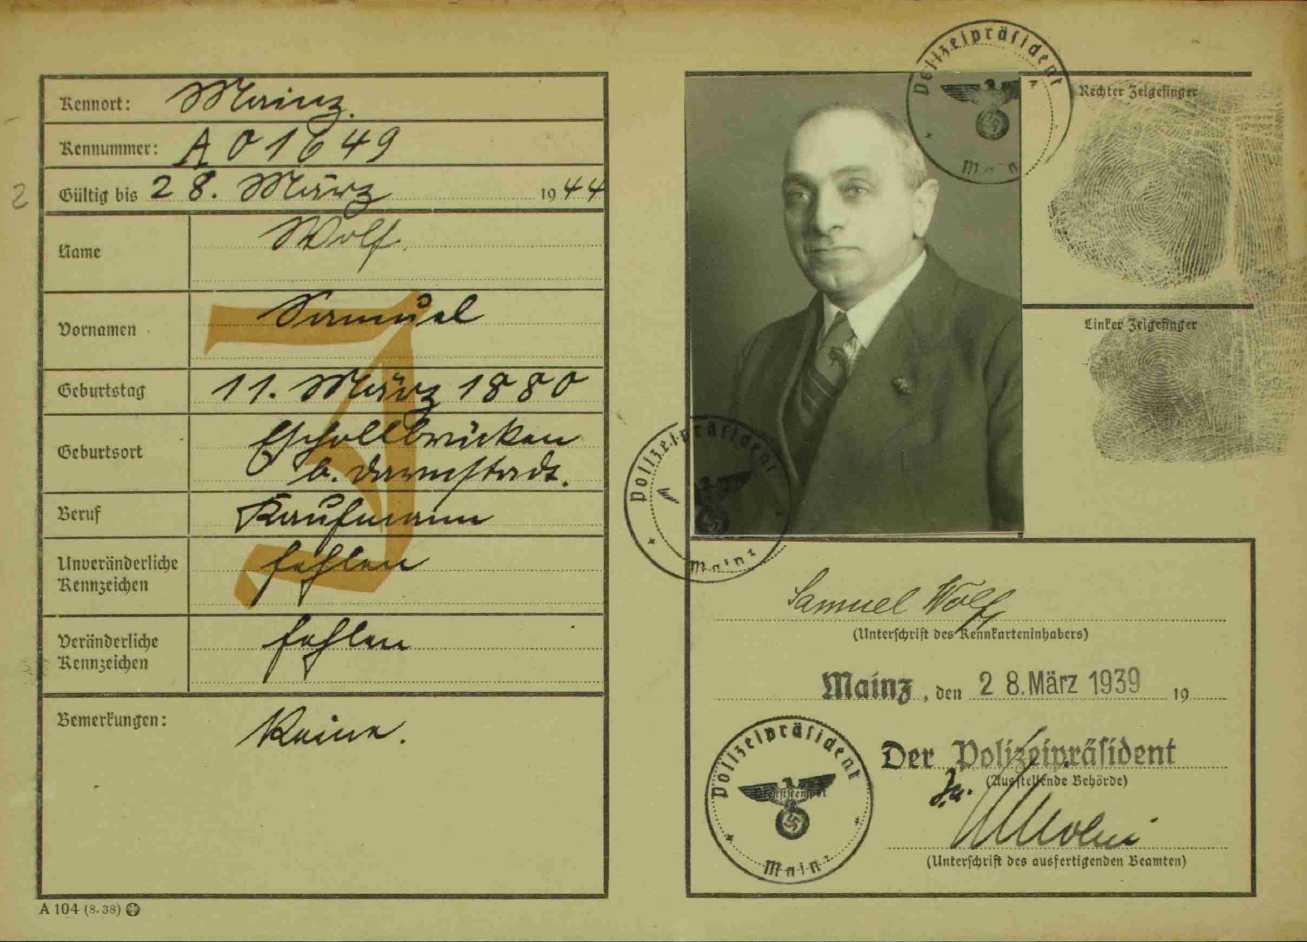 Kennort: Mainz.
Kennummer: A 01649
Gültig bis 28. März 1944
Name Wolf.
Vornamen Samuel
Geburtstag 11. März 1880
Geburtsort Eschollbrücken
b. Darmstadt.
Beruf Kaufmann
Unveränderliche
Kennzeichen fehlen
Veränderliche
Kennzeichen fehlen
Bemerkungen: Keine.
J
2
A 104 (8. 38)
Polizeipräsident
Mainz
Rechter Zeigefinger
Linker Zeigefinger
Polizeipräsident
Mainz
Samuel Wolf
(Unterschrift des Kennkarteninhabers)
Mainz, den 28. März 1939 19
Polizeipräsident
Mainz
Der Polizeipräsident
(Ausstellende Behörde)
(Unterschrift des ausfertigenden Beamten)